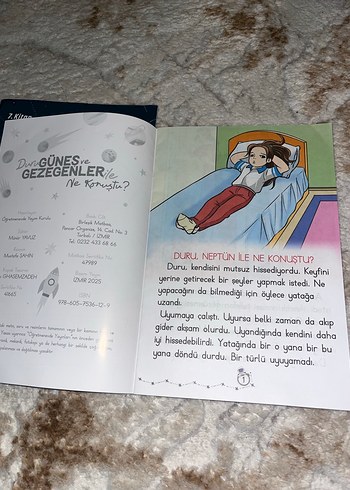 7. Kitap
Duru GÜNEŞ ve
GEZEGENLER ile
Ne Konuştu?
Murat YAVUZ
Mustafa ŞAHİN
Birleşik Matbaa,
Torbalı / İZMİR
Tel: 0232 433 68 66
Matbaa Sertifika No:
47989
Basım Tarihi
İZMİR 2025
ISBN
978-605-7536-12-9
DURU, NEPTÜN İLE NE KONUŞTU?
Duru, kendisini mutsuz hissediyordu. Keyfini
yerine getirecek bir şeyler yapmak istedi. Ne
yapacağını da bilmediği için öylece yatağa
uzandı.
Uyumaya çalıştı. Uyursa belki zaman da akıp
gider akşam olurdu. Uyandığında kendini daha
iyi hissedebilirdi. Yatağında bir o yana bir bu
yana döndü durdu. Bir türlü uyuyamadı.
1